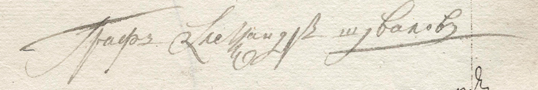 Графъ Александръ Шуваловъ